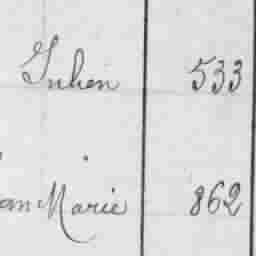 Julien 533
an Marie 862